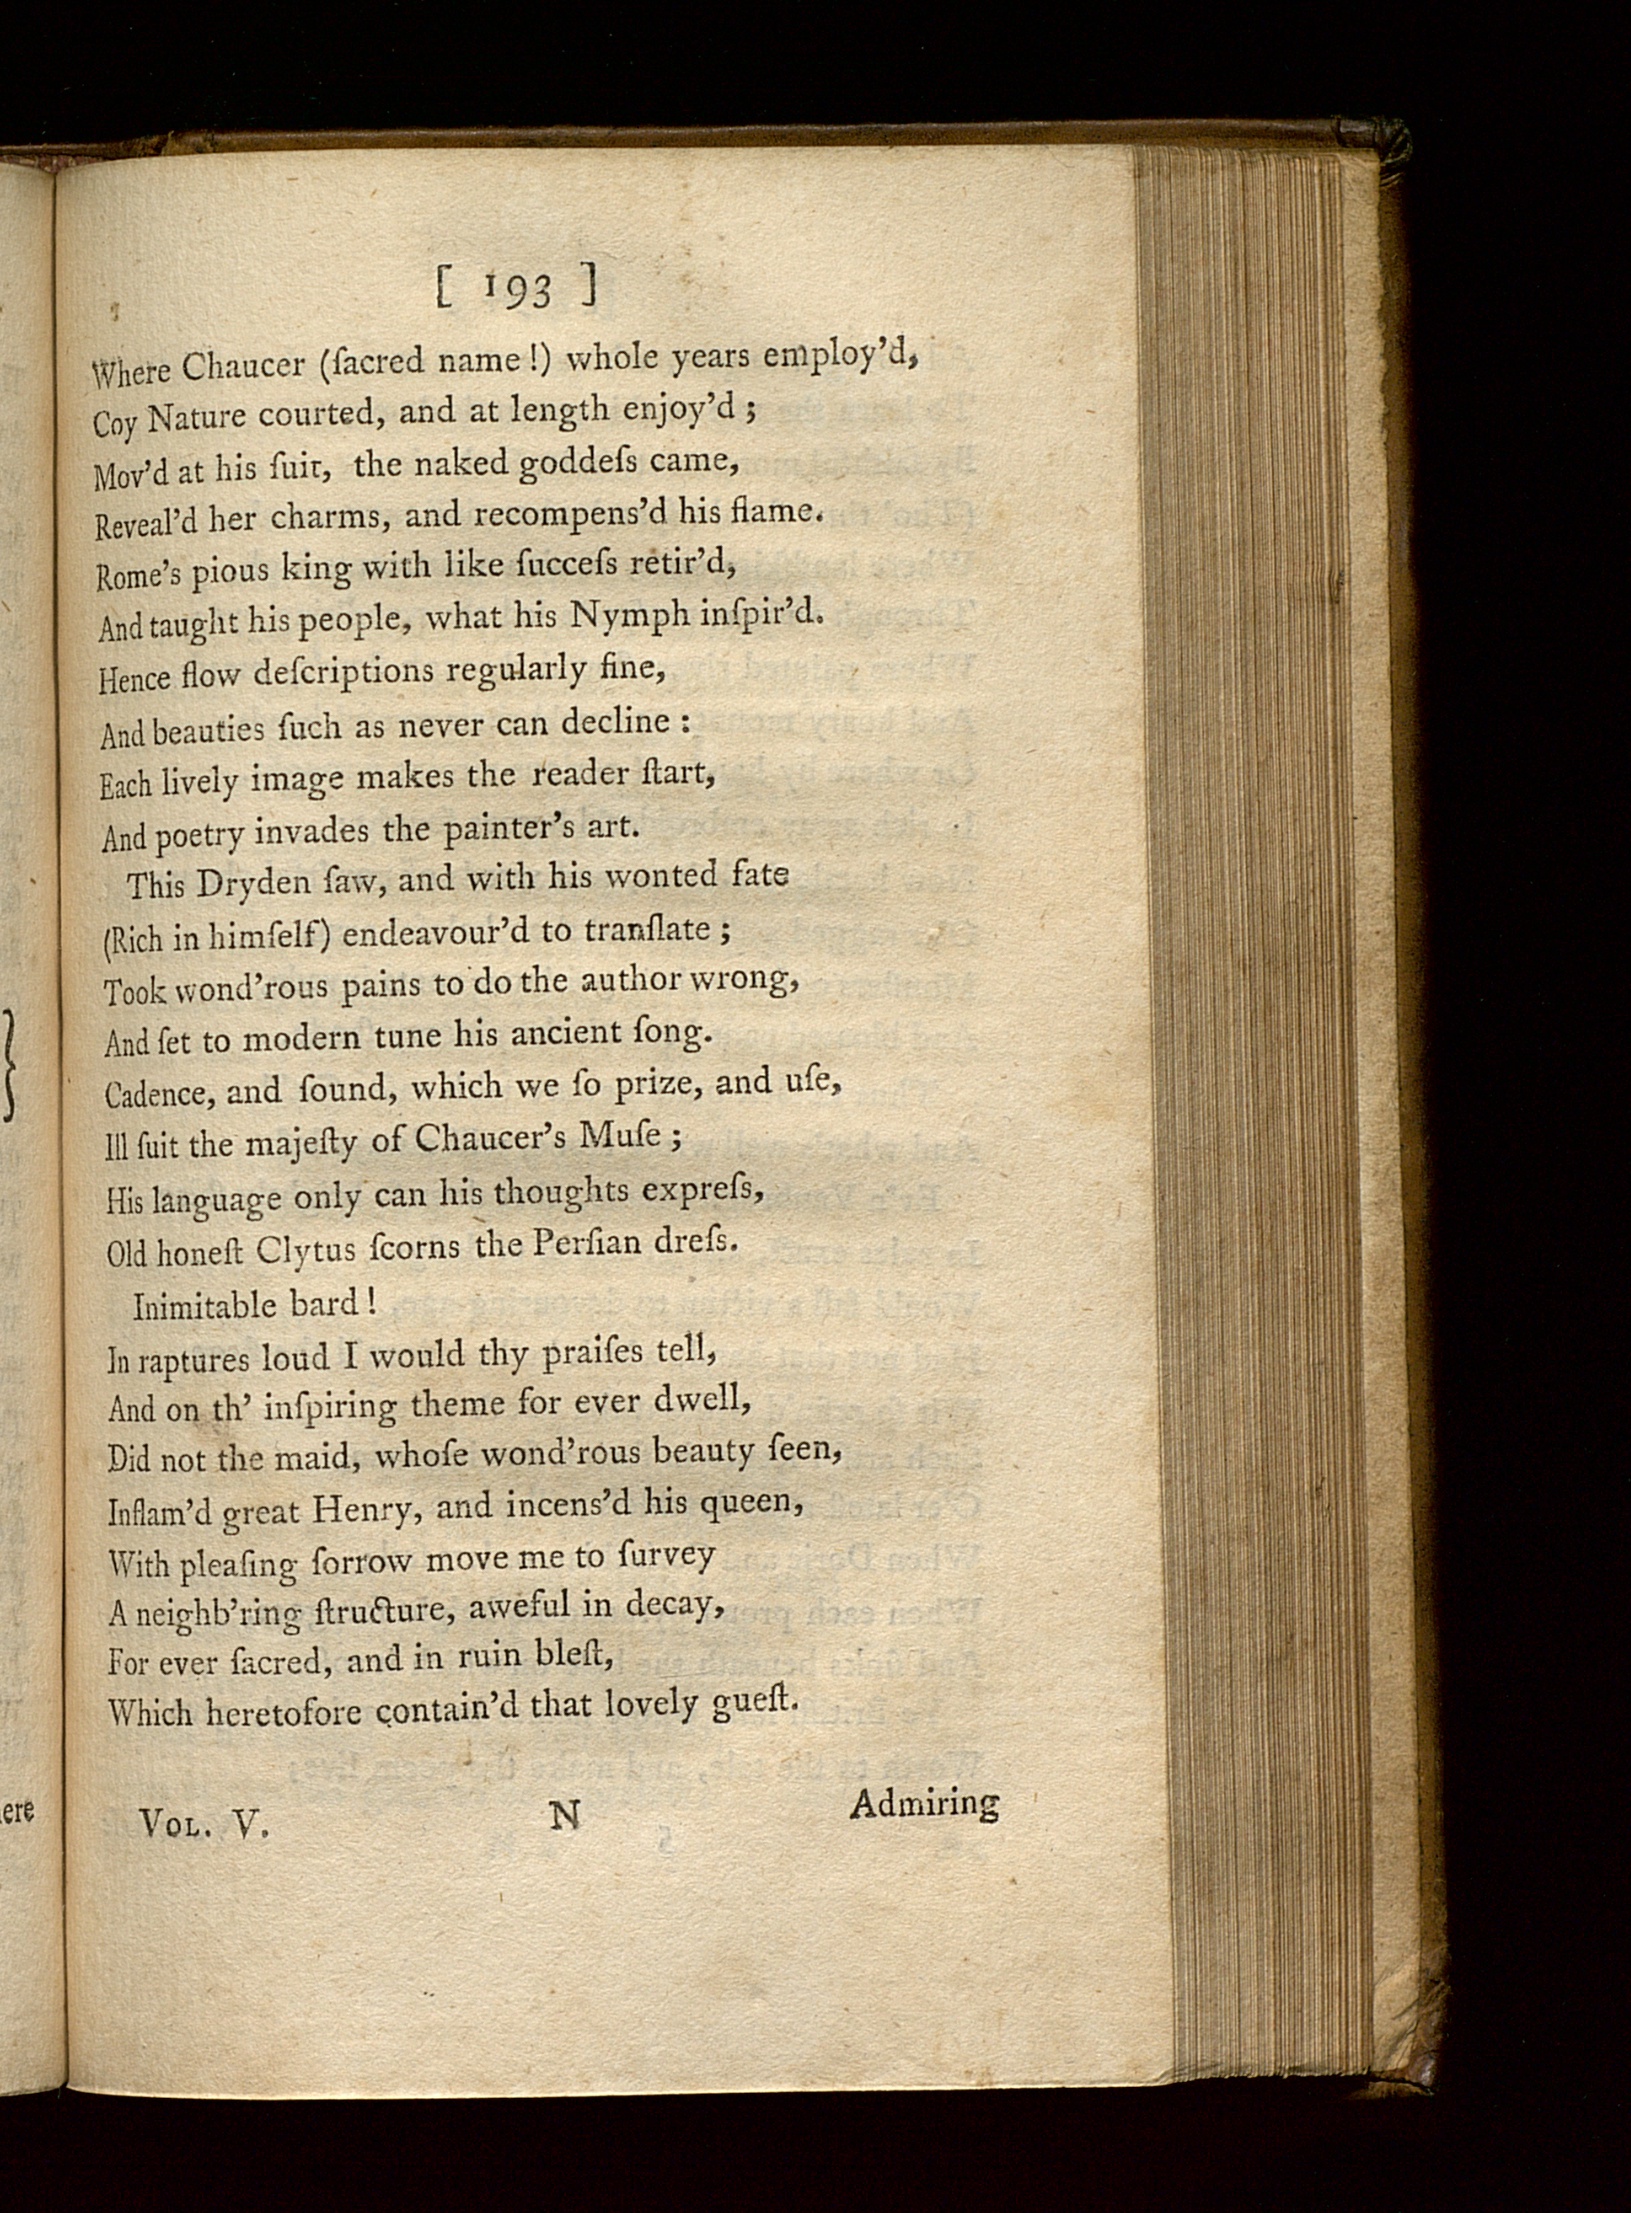 [ 193 ]
Where Chaucer (ſacred name !) whole years employ'd,
Coy Nature courted, and at length enjoy'd ;
Mov'd at his ſuit, the naked goddeſs came,
Reveal'd her charms, and recompens'd his flame.
Rome's pious king with like ſucceſs retir'd,
And taught his people, what his Nymph inſpir'd.
Hence flow deſcriptions regularly fine,
And beauties ſuch as never can decline :
Each lively image makes the reader ſtart,
And poetry invades the painter's art.
This Dryden ſaw, and with his wonted fate
(Rich in himſelf) endeavour'd to tranſlate ;
Took wond'rous pains to do the author wrong,
And ſet to modern tune his ancient ſong.
Cadence, and ſound, which we ſo prize, and uſe,
Ill ſuit the majeſty of Chaucer's Muſe ;
His language only can his thoughts expreſs,
Old honeſt Clytus ſcorns the Perſian dreſs.
Inimitable bard !
In raptures loud I would thy praiſes tell,
And on th' inſpiring theme for ever dwell,
Did not the maid, whoſe wond'rous beauty ſeen,
Inflam'd great Henry, and incens'd his queen,
With pleaſing ſorrow move me to ſurvey
A neighb'ring ſtructure, aweful in decay,
For ever ſacred, and in ruin bleſt,
Which heretofore contain'd that lovely gueſt.
VOL. V. N Admiring